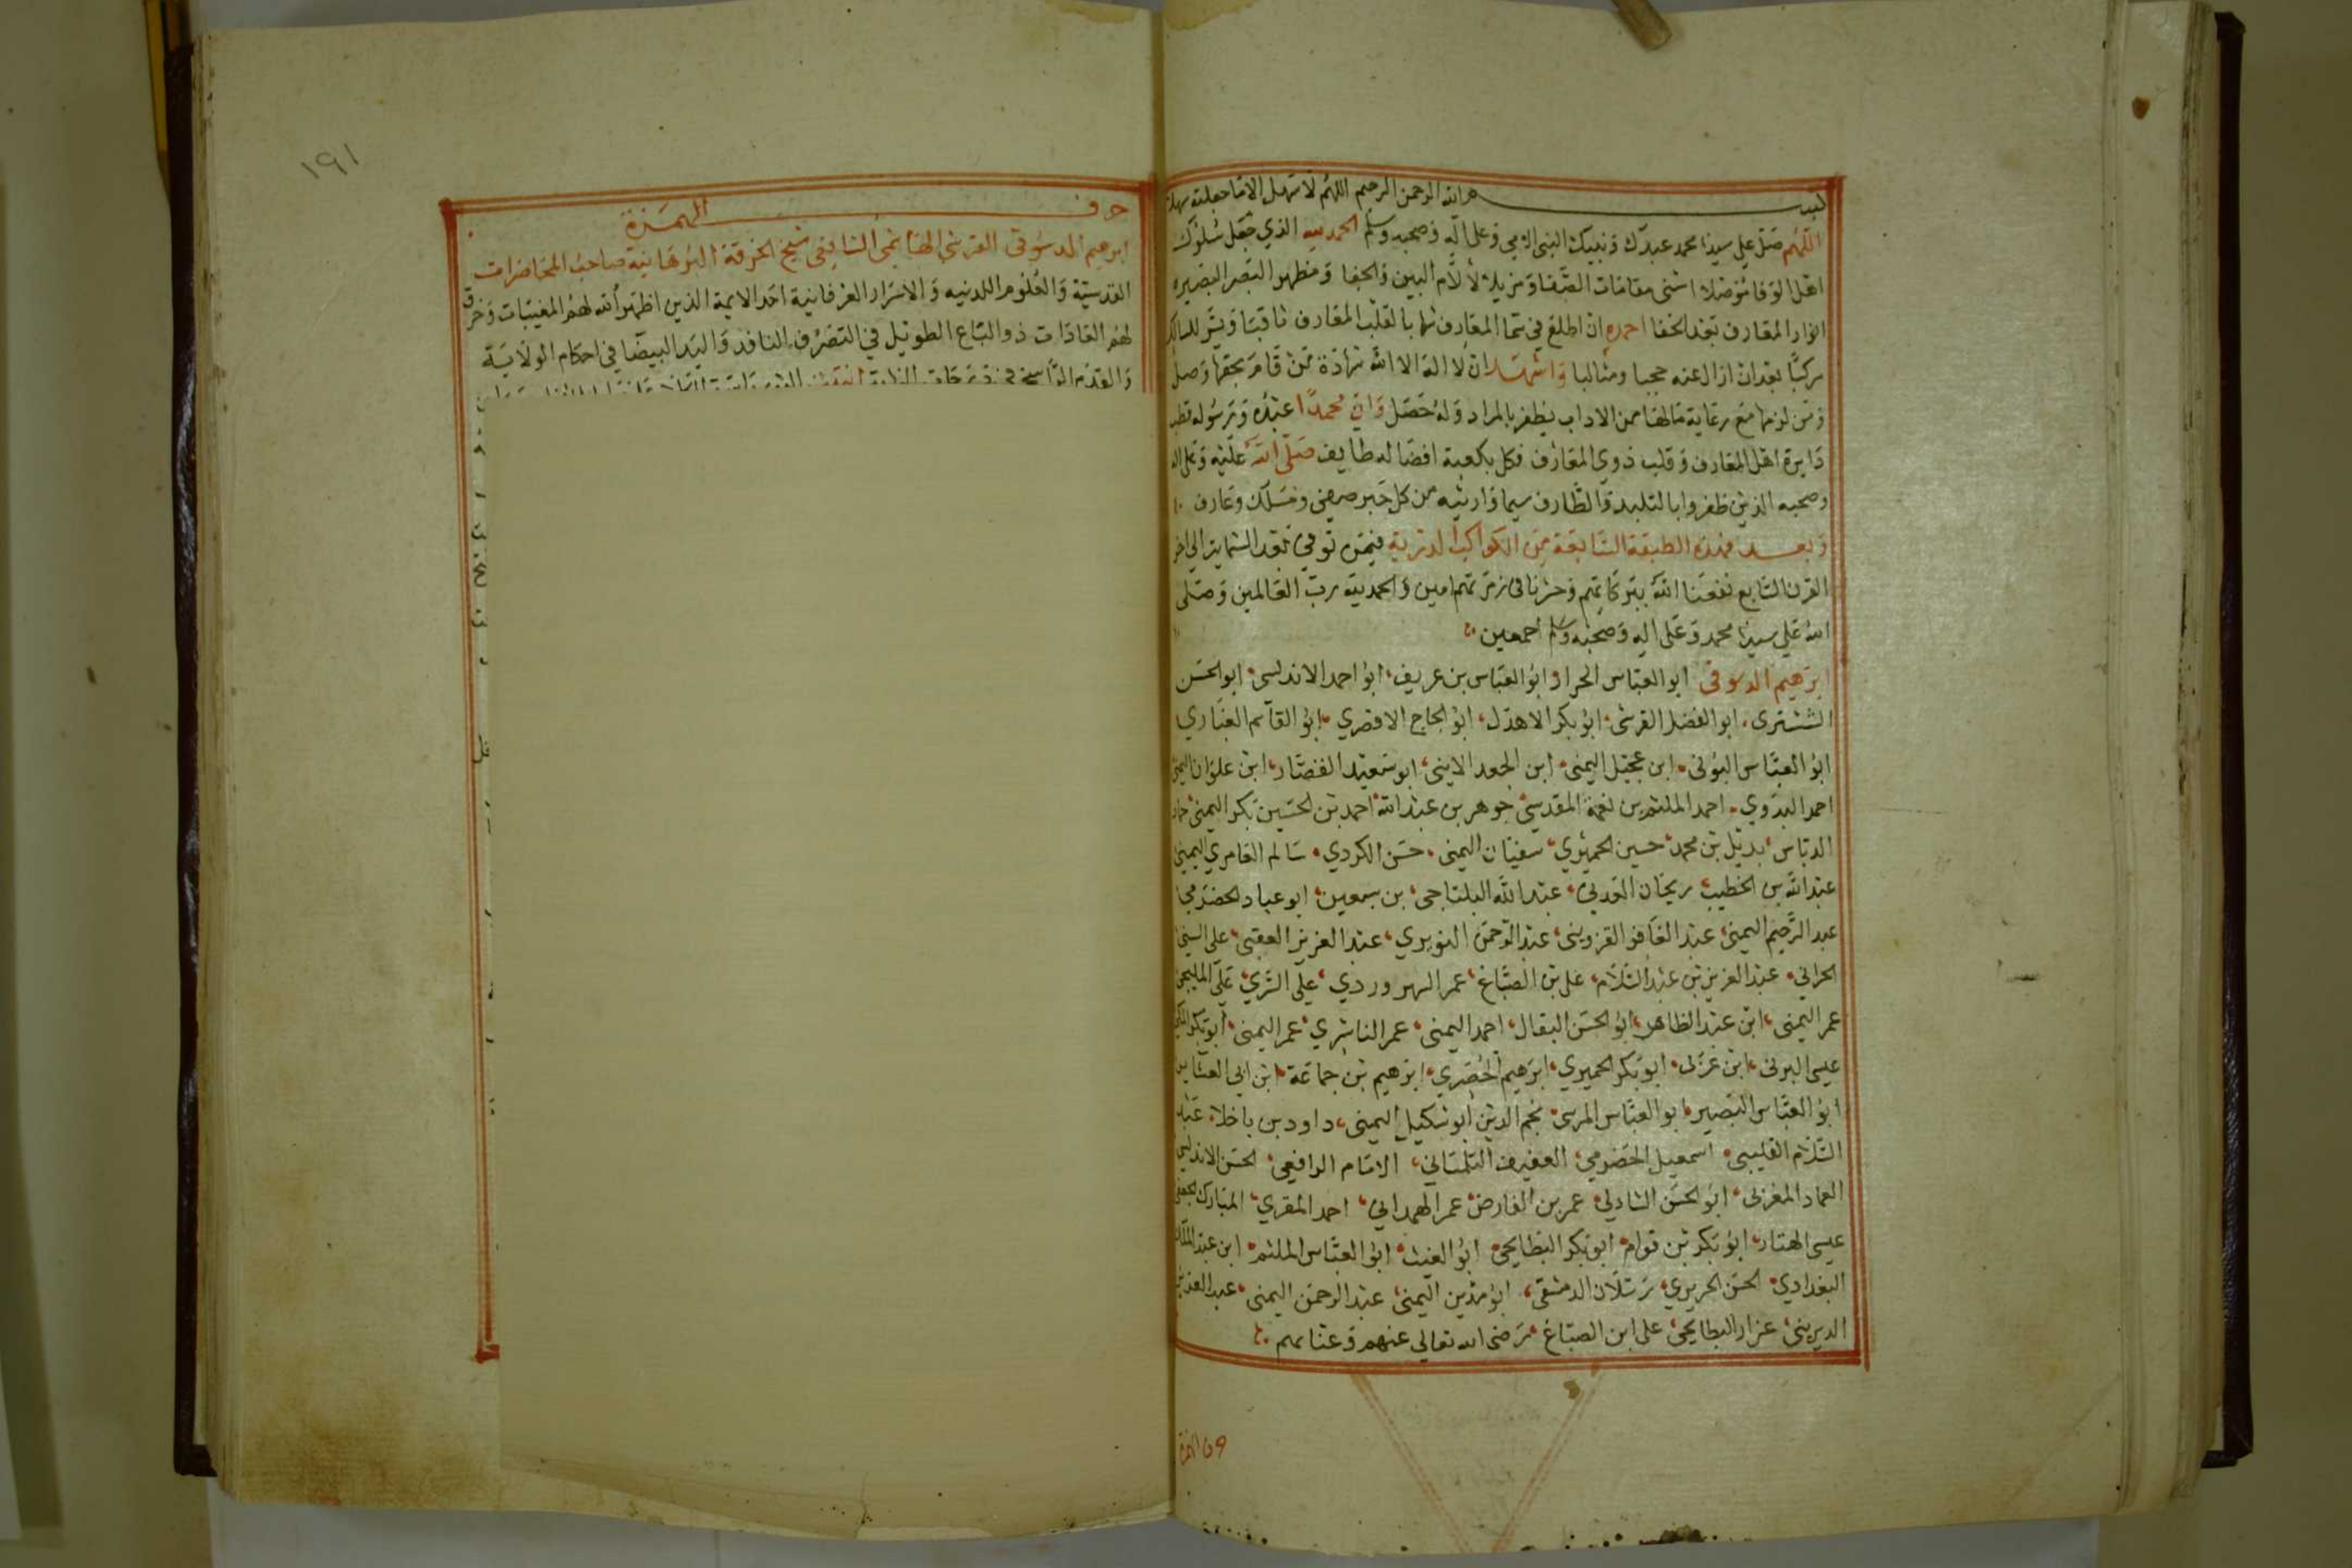 بسم الله الرحمن الرحيم اللهم لا سهل الا ما جعلته سهلا
اللهم صل علي سيدنا محمد عبدك ونبيك النبي الامي وعلى اله وصحبه وسلم الحمد لله الذي جعل سلوك
اهل الوفا موصلا اسنى مقامات الصفا ومزيلا لالام البين والجفا ومظهر البصر البصيره
انوار المعارف بعد الخفا احمده ان اطلع في سما المعارف شها بالقلب المعارف ثاقبا ويسر للسالك
مركبا بعد ان ازال عنه حجبا ومثالبا واشهد ان لا اله الا الله شهادة من قام بحقها وصل
ومن لزمها مع رعاية مالها من الاداب يظفر بالمراد وله حصل وان محمدا عبده ورسوله قطب
دايرة اهل المعارف وقلب ذوي المعارف فكل بكعبة افضاله طايف صلى الله عليه وعلى اله
وصحبه الذين ظفروا بالتليد والطارف سيما وارثيه من كل حبر صوفي ومسلك وعارف
وبعد فهذه الطبقة السابعة من الكواكب الدرية فيمن توفي بعد الستماية الى اخر
القرن السابع نفعنا الله ببركاتهم وحشرنا في زمرتهم امين والحمد لله رب العالمين وصلى
الله علي سيدنا محمد وعلى اله وصحبه وسلم اجمعين
ابرهيم الدسوقى ابو العباس الحرار ابو العباس بن عريف ابو احمد الاندلسي ابو الحسن
الششترى ابو الفضل القرشى ابو بكر الاهدل ابو الحجاج الاقصري ابو القاسم القباري
ابو العباس البوني ابن عجيل اليمنى ابن الجعد الابيني ابو سعيد القصار ابن علوان اليمني
احمد البدوي احمد الملثم بن نعمة المقدسي جوهر بن عبد الله احمد بن الحسين بكر اليمني حماد
الدباس بديل بن محمد حسين الحميري سفيان اليمني حسن الكردي سالم العامري اليمني
عبد الله بن الخطيب ريحان العدني عبد الله البلتاجي بن سبعين ابو عباد الحضرمي
عبد الرحيم اليمني عبد الغافر القزويني عبد الرحمن النويري عبد العزيز العقبي على السني
الحراني عبد العزيز بن عبد السلام على بن الصباغ عمر السهروردي علي السري علي المليجي
عمر اليمني ابن عبد الظاهر ابو الحسن البقال احمد اليمني عمر الناشري عمر اليمني ابو بكر
عيسى البوني ابن غزلى ابو بكر الحميري ابرهيم الحضري ابرهيم بن جماعة ابن ابي العشاير
ابو العباس البصير ابو العباس المرسي نجم الدين ابو شكيل اليمني داود بن باخلا عبد
السلام القليبي اسمعيل الحضرمي العفيف التلمساني الامام الرافعي الحسن الاندلسي
العماد المغربي ابو الحسن الشاذلي عمر بن الفارض عمر الهمداني احمد المقري المبارك
عيسى الهتار ابو بكر بن قوام ابو بكر البطايحي ابو الغيث ابو العباس الملثم ابن عبد الملك
البغدادي الحسن الحريري رسلان الدمشقي ابو مدين اليمني عبد الرحمن اليمني عبد العزيز
الديريني عزاز البطايحي على ابن الصباغ رضى الله تعالى عنهم وعنا بهم
حرف الهمزة
١٩١
حرف الهمزة
ابرهيم الدسوقى القرشي الهاشمي الشافعى شيخ الخرقة البرهانية صاحب المحاضرات
القدسية والعلوم اللدنيه والاسرار العرفانية احد الايمة الذين اظهر الله لهم المغيبات وخرق
لهم العادات ذو الباع الطويل في التصرف النافذ واليد البيضا في احكام الولاية
والقدم الراسخ فى درجات النهاية